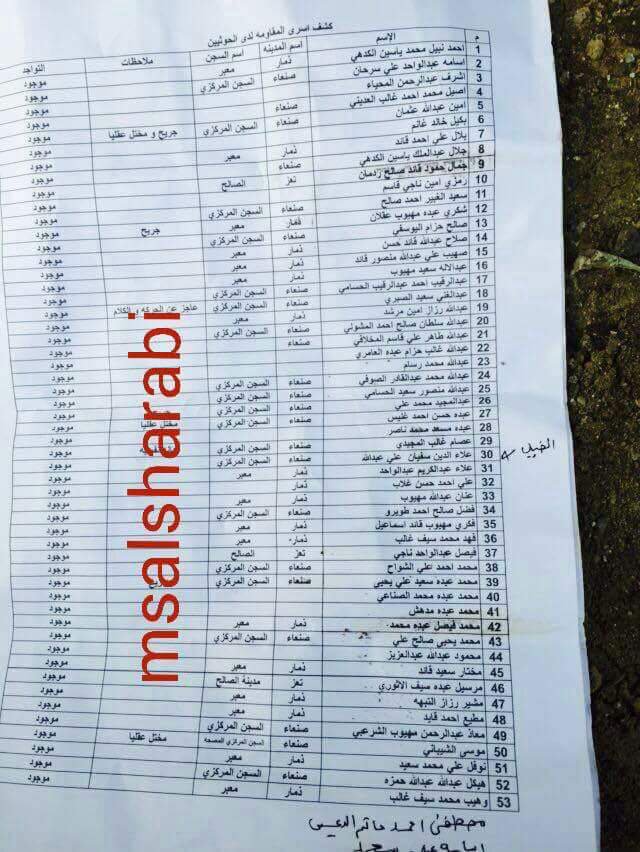 كشف اسرى المقاومه لدى الحوثيين
م الإسم اسم المدينه اسم السجن ملاحظات التواجد
1 احمد نبيل محمد ياسين الكدهي ذمار معبر موجود
2 اسامه عبدالواحد علي سرحان صنعاء السجن المركزي موجود
3 اشرف عبدالرحمن المحياء موجود
4 اصيل محمد احمد غالب العديني صنعاء موجود
5 امين عبدالله عثمان صنعاء السجن المركزي جريح و مختل عقليا موجود
6 بكيل خالد غانم موجود
7 بلال علي احمد قائد ذمار معبر موجود
8 جلال عبدالملك ياسين الكدهي صنعاء موجود
9 جمال حمود قائد صالح ردمان تعز الصالح موجود
10 رمزي امين ناجي قاسم موجود
11 سعيد الغبير احمد صالح صنعاء السجن المركزي موجود
12 شكري عبده مهيوب عقلان ذمار معبر جريح موجود
13 صالح حزام اليوسفي صنعاء السجن المركزي موجود
14 صلاح عبدالله قائد حسن ذمار معبر موجود
15 صهيب علي عبدالله منصور قائد ذمار معبر موجود
16 عبدالاله سعيد مهيوب ذمار معبر موجود
17 عبدالرقيب احمد عبدالرقيب الحسامي صنعاء السجن المركزي موجود
18 عبدالغني سعيد الصبري صنعاء السجن المركزي عاجز عن الحركه و الكلام موجود
19 عبدالله رزاز امين مرشد ذمار معبر موجود
20 عبدالله سلطان صالح احمد المشولي صنعاء السجن المركزي موجود
21 عبدالله طاهر علي قاسم المخلافي موجود
22 عبدالله غالب حزام عبده العامري موجود
23 عبدالله محمد رسام موجود
24 عبدالله محمد عبدالقادر الصوفي صنعاء السجن المركزي موجود
25 عبدالله منصور سعيد الحسامي صنعاء السجن المركزي موجود
26 عبدالمجيد محمد علي صنعاء السجن المركزي موجود
27 عبده حسن احمد غليس صنعاء السجن المركزي مختل عقليا موجود
28 عبده مسعد محمد ناصر موجود
29 عصام غالب المجيدي صنعاء السجن المركزي موجود
30 علاء الدين سفيان علي عبدالله صنعاء السجن المركزي موجود
31 علاء عبدالكريم عبدالواحد ذمار معبر موجود
32 علي احمد حسن غلاب موجود
33 عنان عبدالله مهيوب ذمار معبر موجود
34 فضل صالح احمد طويرو صنعاء السجن المركزي موجود
35 فكري مهيوب قائد اسماعيل ذمار معبر موجود
36 فهد محمد سيف غالب ذمار معبر موجود
37 فيصل عبدالواحد ناجي تعز الصالح موجود
38 محمد احمد علي الشواح صنعاء السجن المركزي موجود
39 محمد عبده سعيد علي يحيى صنعاء السجن المركزي موجود
40 محمد عبده محمد الصناعي موجود
41 محمد عبده مدهش موجود
42 محمد فيصل عبده محمد ذمار معبر موجود
43 محمد يحيى صالح علي صنعاء السجن المركزي موجود
44 محمود عبدالله عبدالعزيز موجود
45 مختار سعيد قائد ذمار معبر موجود
46 مرسيل عبده سيف الاثوري تعز مدينة الصالح موجود
47 مشير رزاز النبهه ذمار معبر موجود
48 مطيع احمد قايد ذمار معبر موجود
49 معاذ عبدالرحمن مهيوب الشرعبي صنعاء السجن المركزي موجود
50 موسى الشيباني صنعاء السجن المركزي المصحه مختل عقليا موجود
51 نوفل علي محمد سعيد ذمار معبر موجود
52 هيكل عبدالله عبدالله حمزه صنعاء السجن المركزي موجود
53 وهيب محمد سيف غالب ذمار معبر موجود
مصطفى احمد
msalsharabi